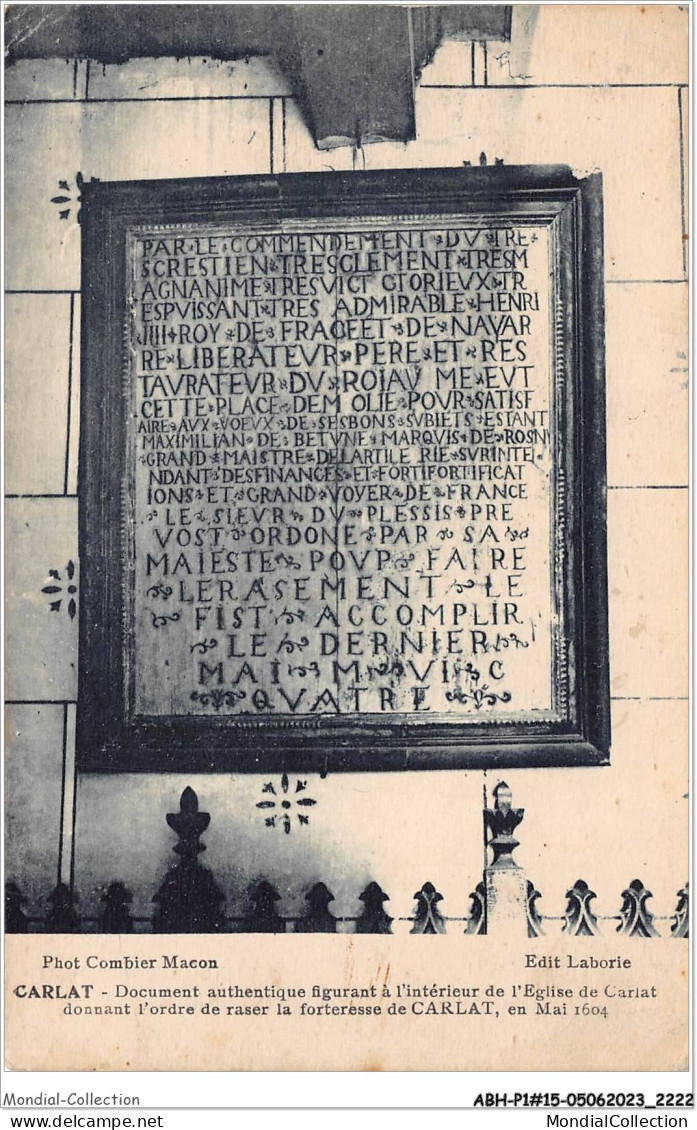 PAR·LE·COMMENDEMENT·DV·TRE
SCRESTIEN·TRESCLEMENT·TRESM
AGNANIME·TRESVICTORIEVX·TR
ESPVISSANT·TRES ADMIRABLE·HENRI
IIII·ROY·DE·FRACEET·DE·NAVAR
RE·LIBERATEVR·PERE·ET·RES
TAVRATEVR·DV·ROIAV ME·EVT
CETTE·PLACE·DEMOLIE·POVR·SATISF
AIRE·AVX·VOEVX·DE·SESBONS·SVBIETS·ESTANT
MAXIMILIAN·DE·BETVNE·MARQVIS·DE·ROSNI
·GRAND·MAISTRE·DELARTILE RIE·SVRINTE
NDANT·DESFINANCES·ET·FORTIFORTIFICAT
IONS·ET·GRAND·VOYER·DE·FRANCE
·LE·SIEVR·DV·PLESSIS·PRE
VOST·ORDONE·PAR·SA·
MAIESTE·POVP·FAIRE
·LERASEMENT·LE
·FIST·ACCOMPLIR
·LE·DERNIER·
MAI·M·VI·C
·QVATRE·
Phot Combier Macon
Edit Laborie
CARLAT - Document authentique figurant à l'intérieur de l'Eglise de Carlat
donnant l'ordre de raser la forteresse de CARLAT, en Mai 1604
Mondial-Collection
ABH-P1#15-05062023_2222
www.mondialcollection.com
MondialCollection